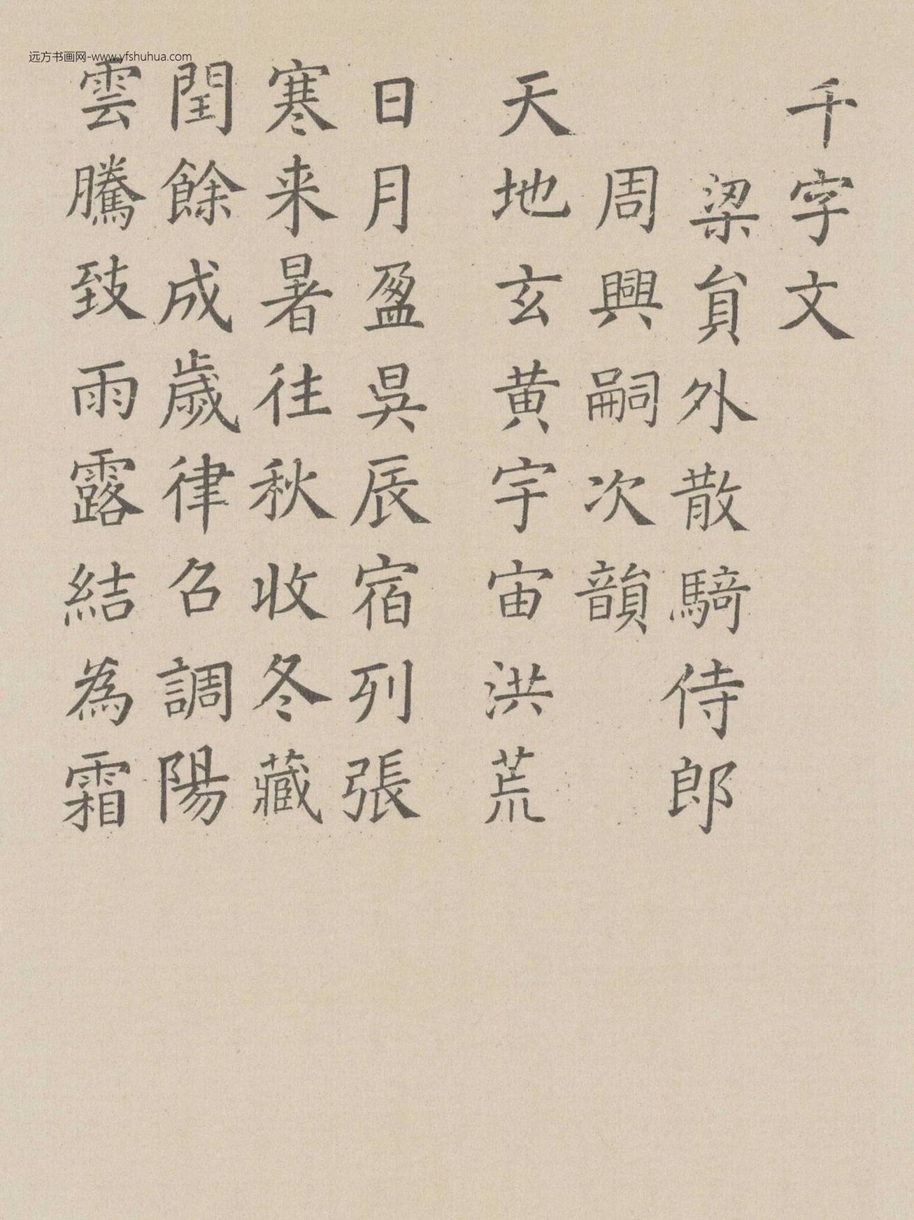 远方书画网-www.yfshuhua.com
千字文
梁貟外散騎侍郎
周興嗣次韻
天地玄黄宇宙洪荒
日月盈昃辰宿列張
寒来暑往秋收冬藏
閏餘成歲律召調陽
雲騰致雨露結為霜